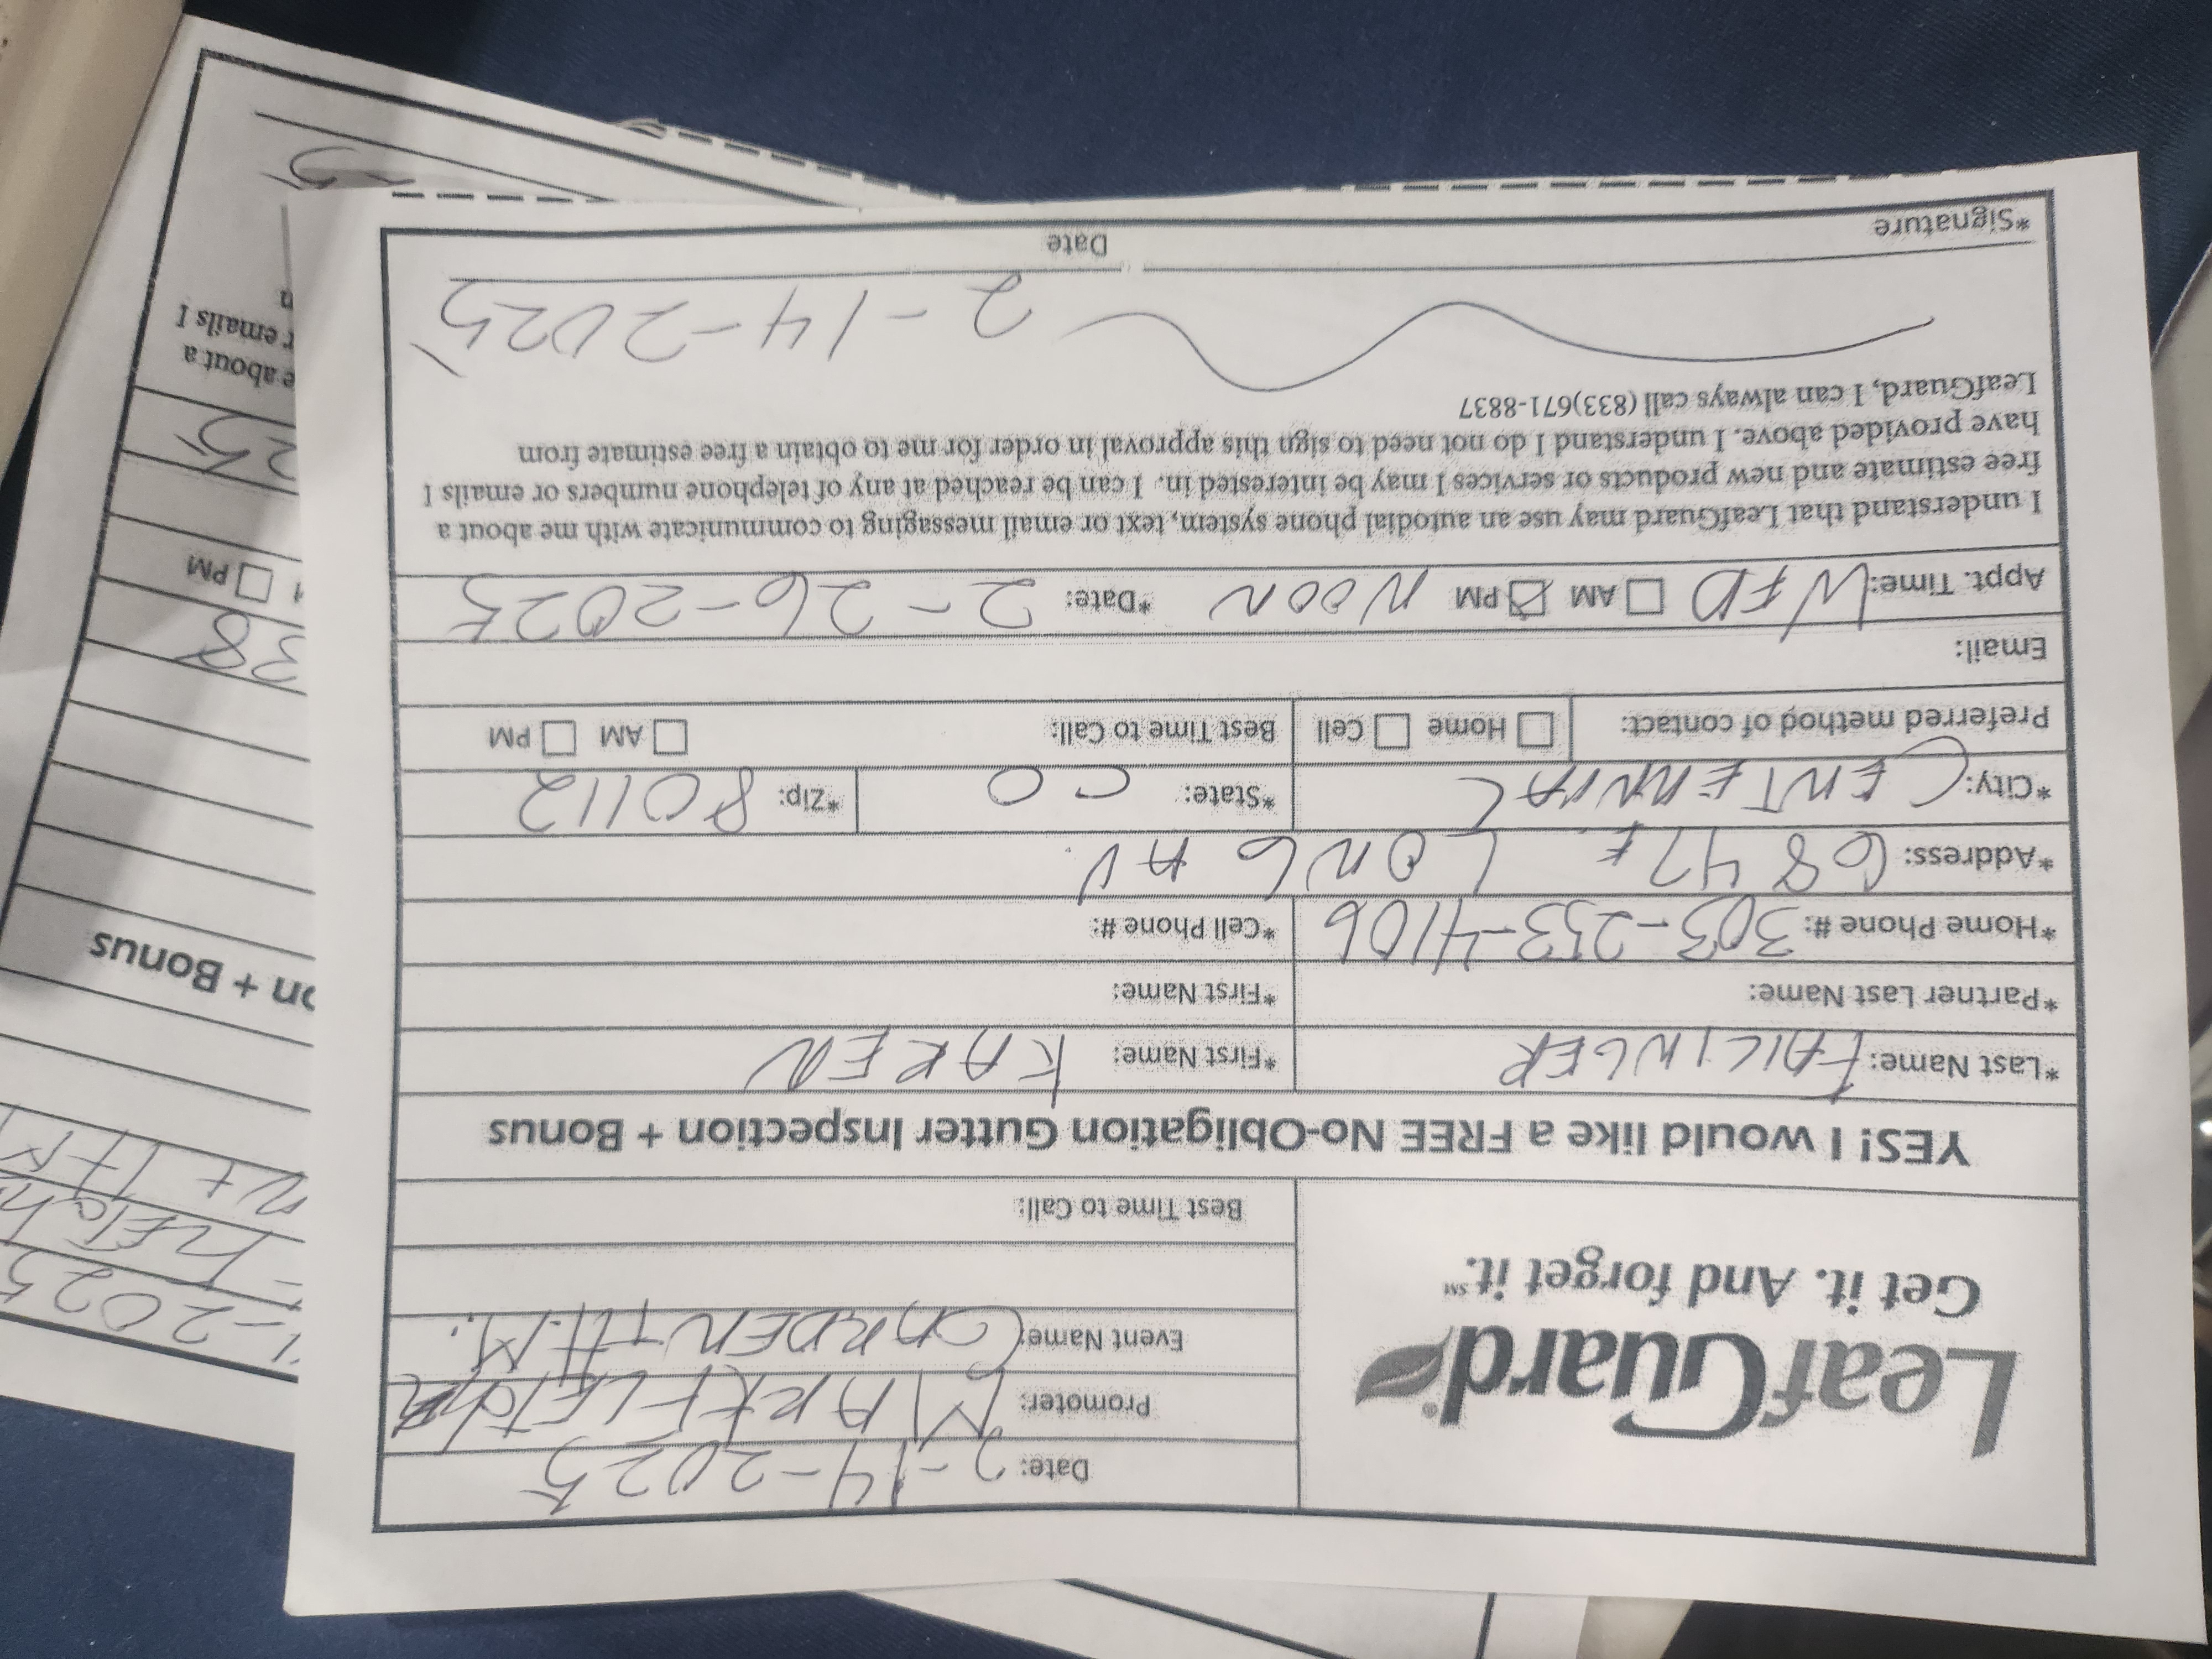 LeafGuard®
Get it. And forget it.℠
Date: 2-14-2025
Promoter: MARK FLETCHER
Event Name: GARDEN + H.M.
Best Time to Call:
YES! I would like a FREE No-Obligation Gutter Inspection + Bonus
*Last Name: FAILINGER *First Name: KAREN
*Partner Last Name: *First Name:
*Home Phone #: 303-253-4106 *Cell Phone #:
*Address: 6847 E. LONG AV.
*City: CENTENNIAL *State: CO *Zip: 80112
Preferred method of contact: Home Cell Best Time to Call: AM PM
Email:
Appt. Time: WED AM PM NOON *Date: 2-26-2025
I understand that LeafGuard may use an autodial phone system, text or email messaging to communicate with me about a
free estimate and new products or services I may be interested in. I can be reached at any of telephone numbers or emails I
have provided above. I understand I do not need to sign this approval in order for me to obtain a free estimate from
LeafGuard, I can always call (833)671-8837
2-14-2025
*Signature Date
-2025
+ H.M
on + Bonus
38
PM
25
e about a
r emails I
n
5